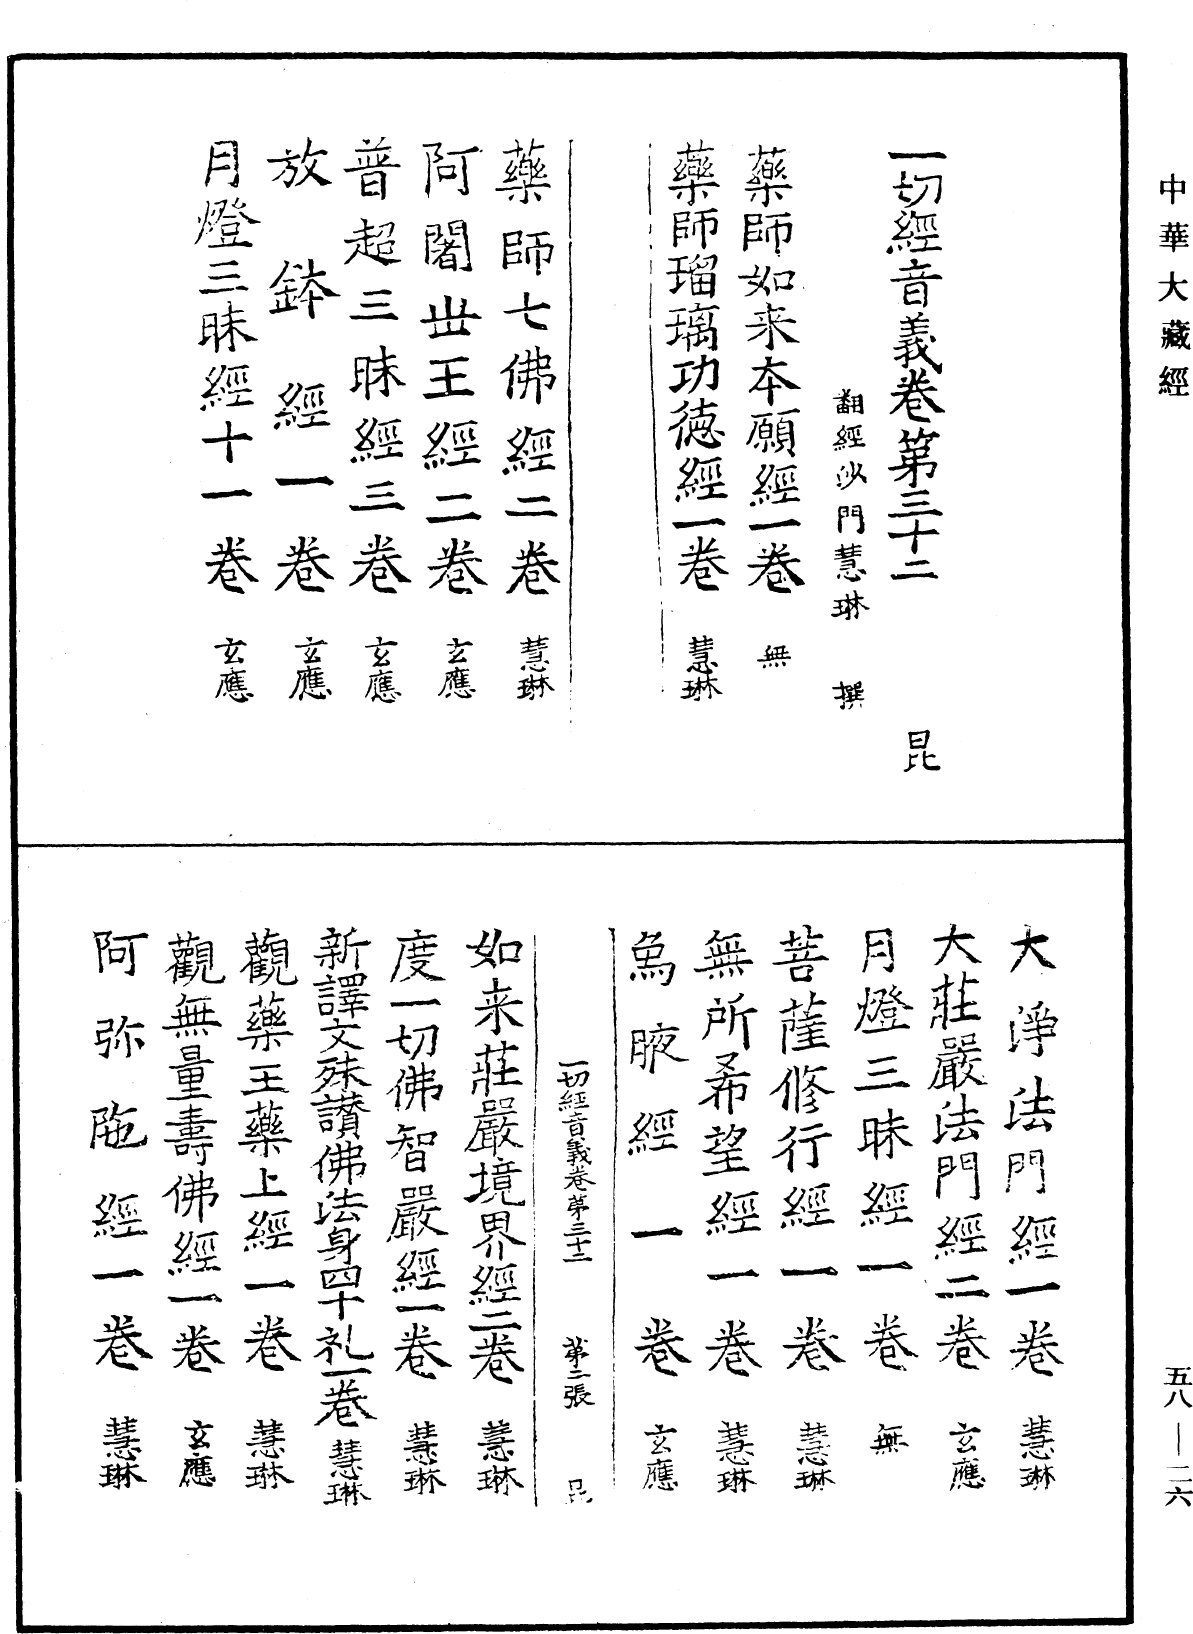 中華大藏經
一切經音義卷第三十二 昆
翻經沙門慧琳 撰
藥師如来本願經一卷 無
藥師瑠璃功徳經一卷 慧琳
藥師七佛經二卷 慧琳
阿闍丗王經二卷 玄應
普超三昧經三卷 玄應
放鉢經一卷 玄應
月燈三昧經十一卷 玄應
大淨法門經一卷 慧琳
大莊嚴法門經二卷 玄應
月燈三昧經一卷 無
菩薩修行經一卷 慧琳
無所希望經一卷 慧琳
烏腋經一卷 玄應
一切經音義卷第三十二 第二張 昆
如来莊嚴境界經二卷 慧琳
度一切佛智嚴經一卷 慧琳
新譯文殊讃佛法身四十礼一卷 慧琳
觀藥王藥上經一卷 慧琳
觀無量壽佛經一卷 玄應
阿弥陁經一卷 慧琳
五八—二六